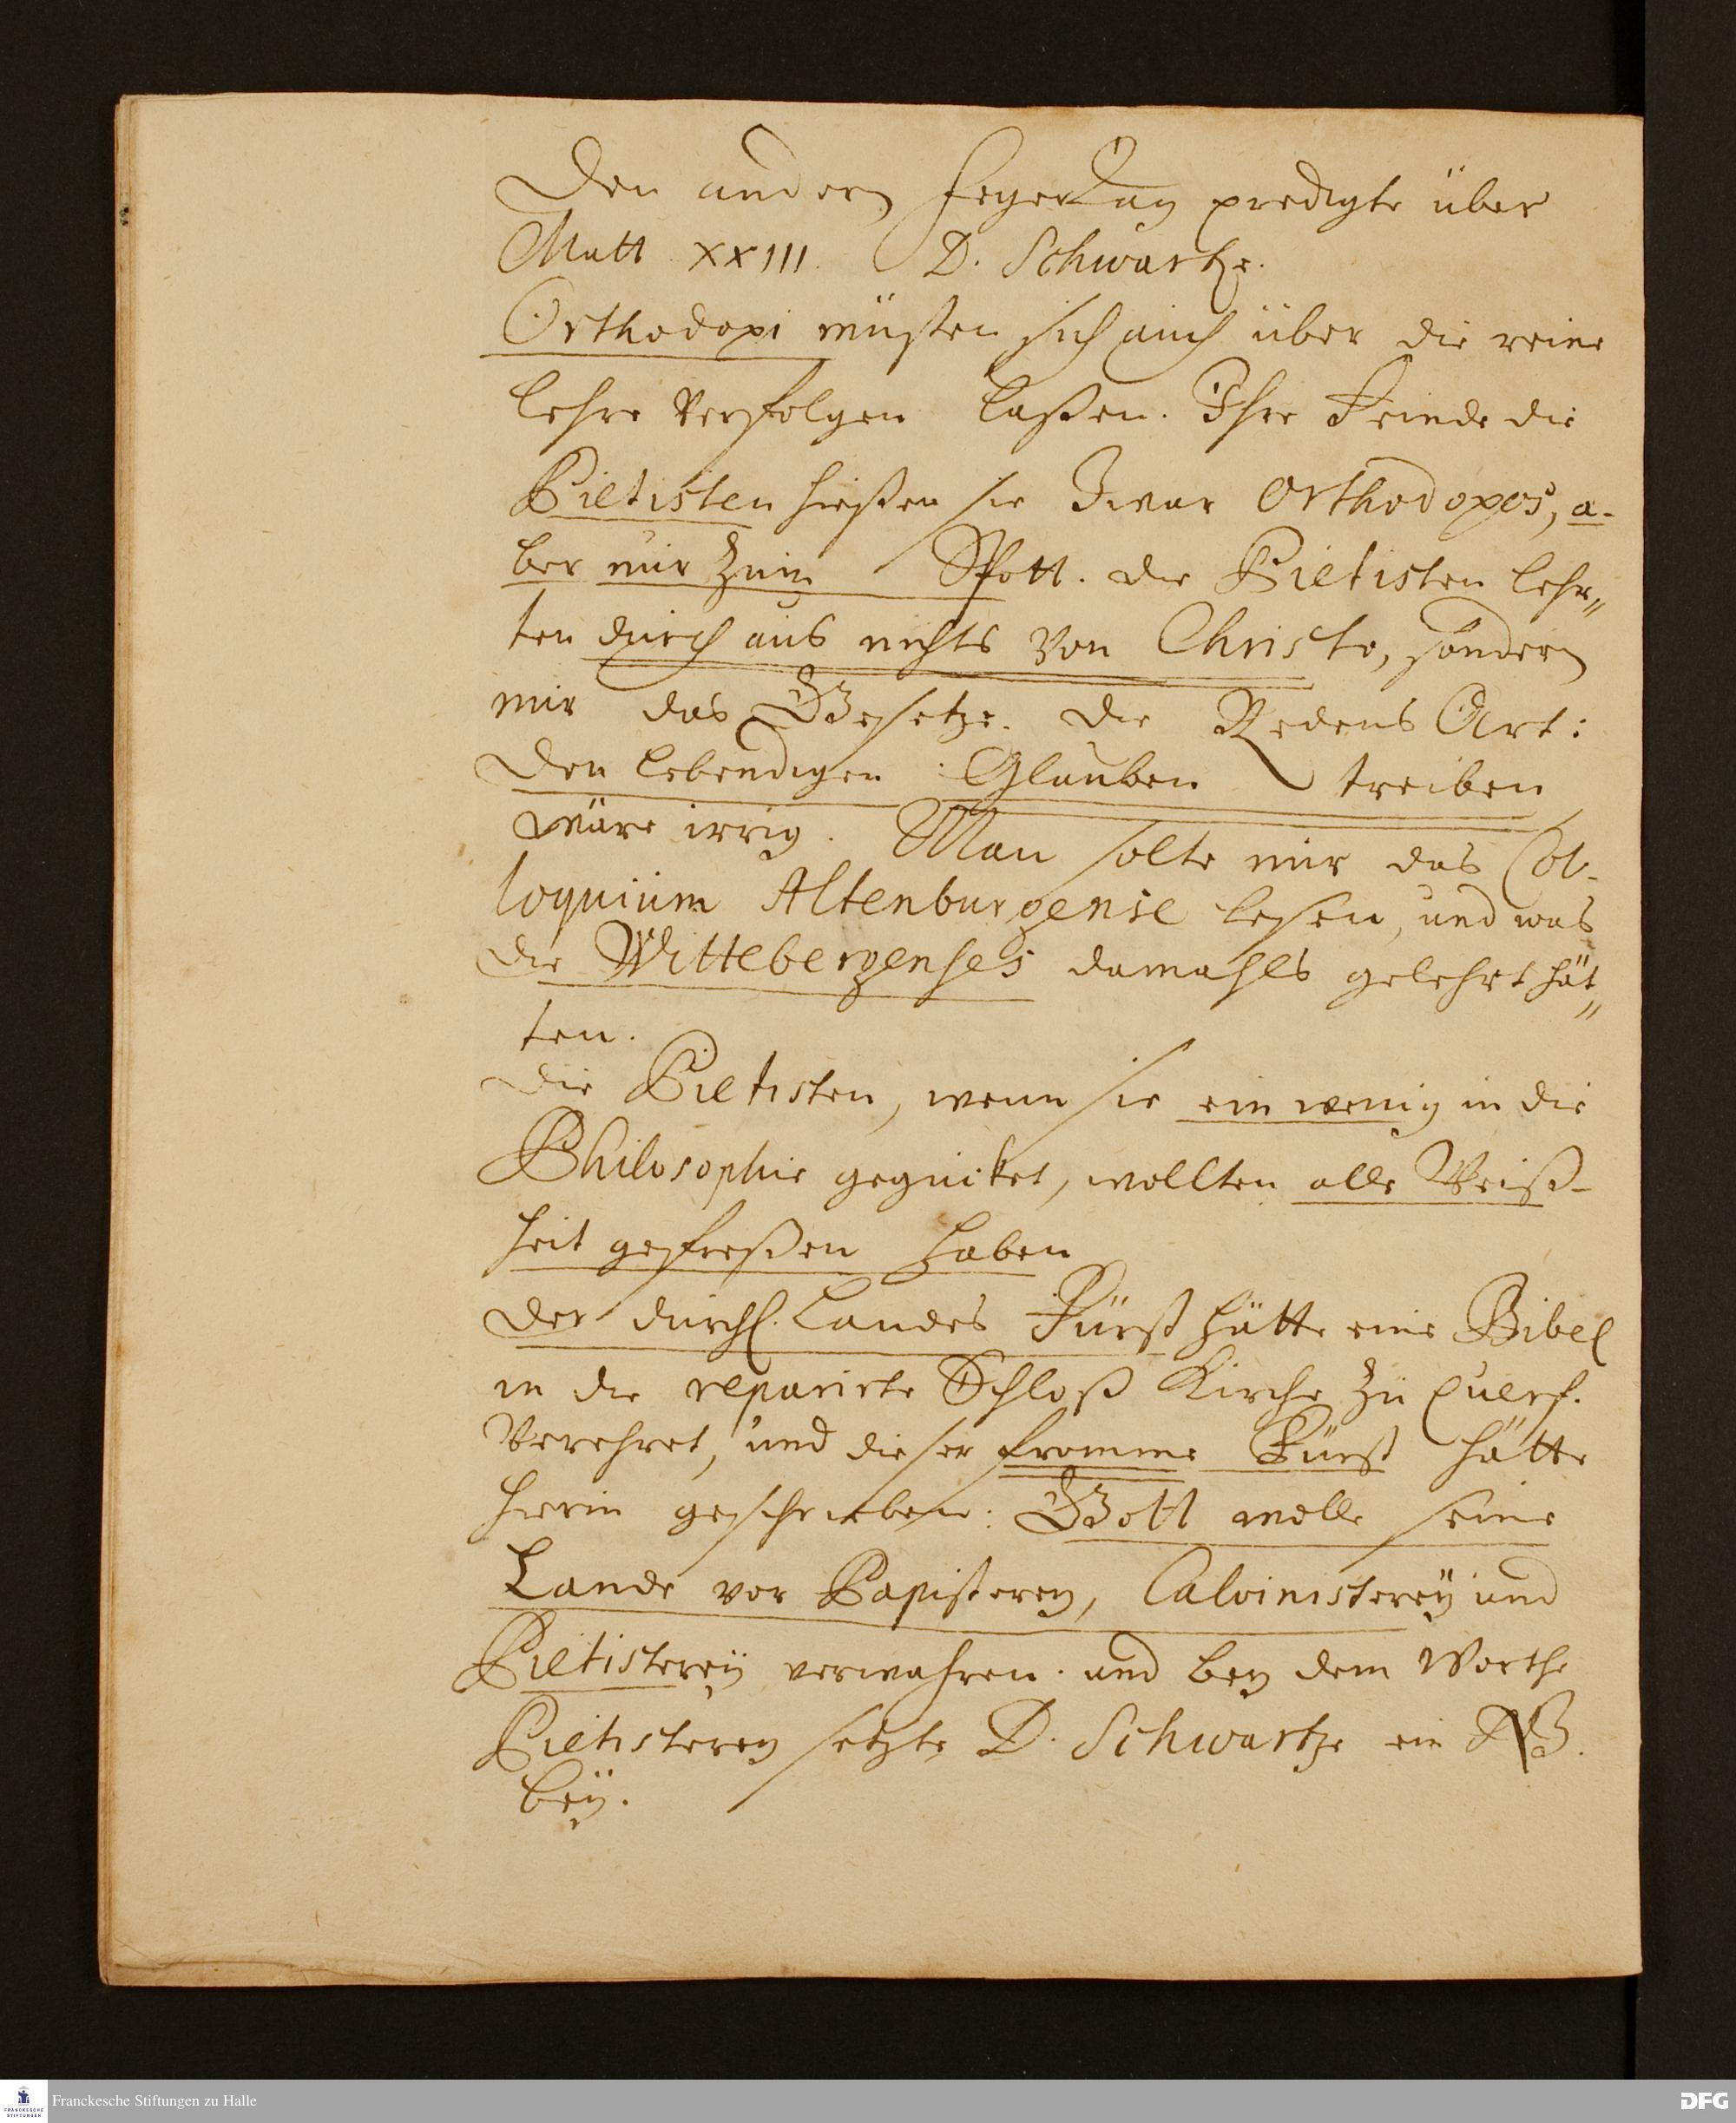 Den andern FeyerTag predigte über
Matt XXIII. D. Schwartze.
Orthodoxi müsten sich auch über die reine
Lehre Verfolgen laßen. Ihre Feinde die
Pietisten hießen sie Zwar Orthodoxos, a-
ber nur Zum Spott. die Pietisten lehr„
ten durch aus nichts Von Christo, sondern
nur das Gesetze. die Redens Art:
Den lebendigen Glauben treiben
wäre irrig. Man solte nur das Col-
loquium Altenburgense lesen, und was
die Wittebergenses damahls gelehrt hät„
ten.
Die Pietisten, wenn sie ein wenig in die
Philosophie geguiket, wollten alle Weiß-
heit gefreßen haben
Der durchl. Landes Fürst hätte eine Bibel
in die reparirte Schloß Kirche zu Querf.
Verehret, und dieser fromme Fürst hätte
hierin geschrieben: Gott wolle seine
Lande vor Papisterey, Calvinisterey und
Pietisterey verwahren. und bey dem Worthe
Pietisterey setzte D. Schwartze ein NB.
bey.
Franckesche Stiftungen zu Halle
FRANCKESCHE
STIFTUNGEN
DFG